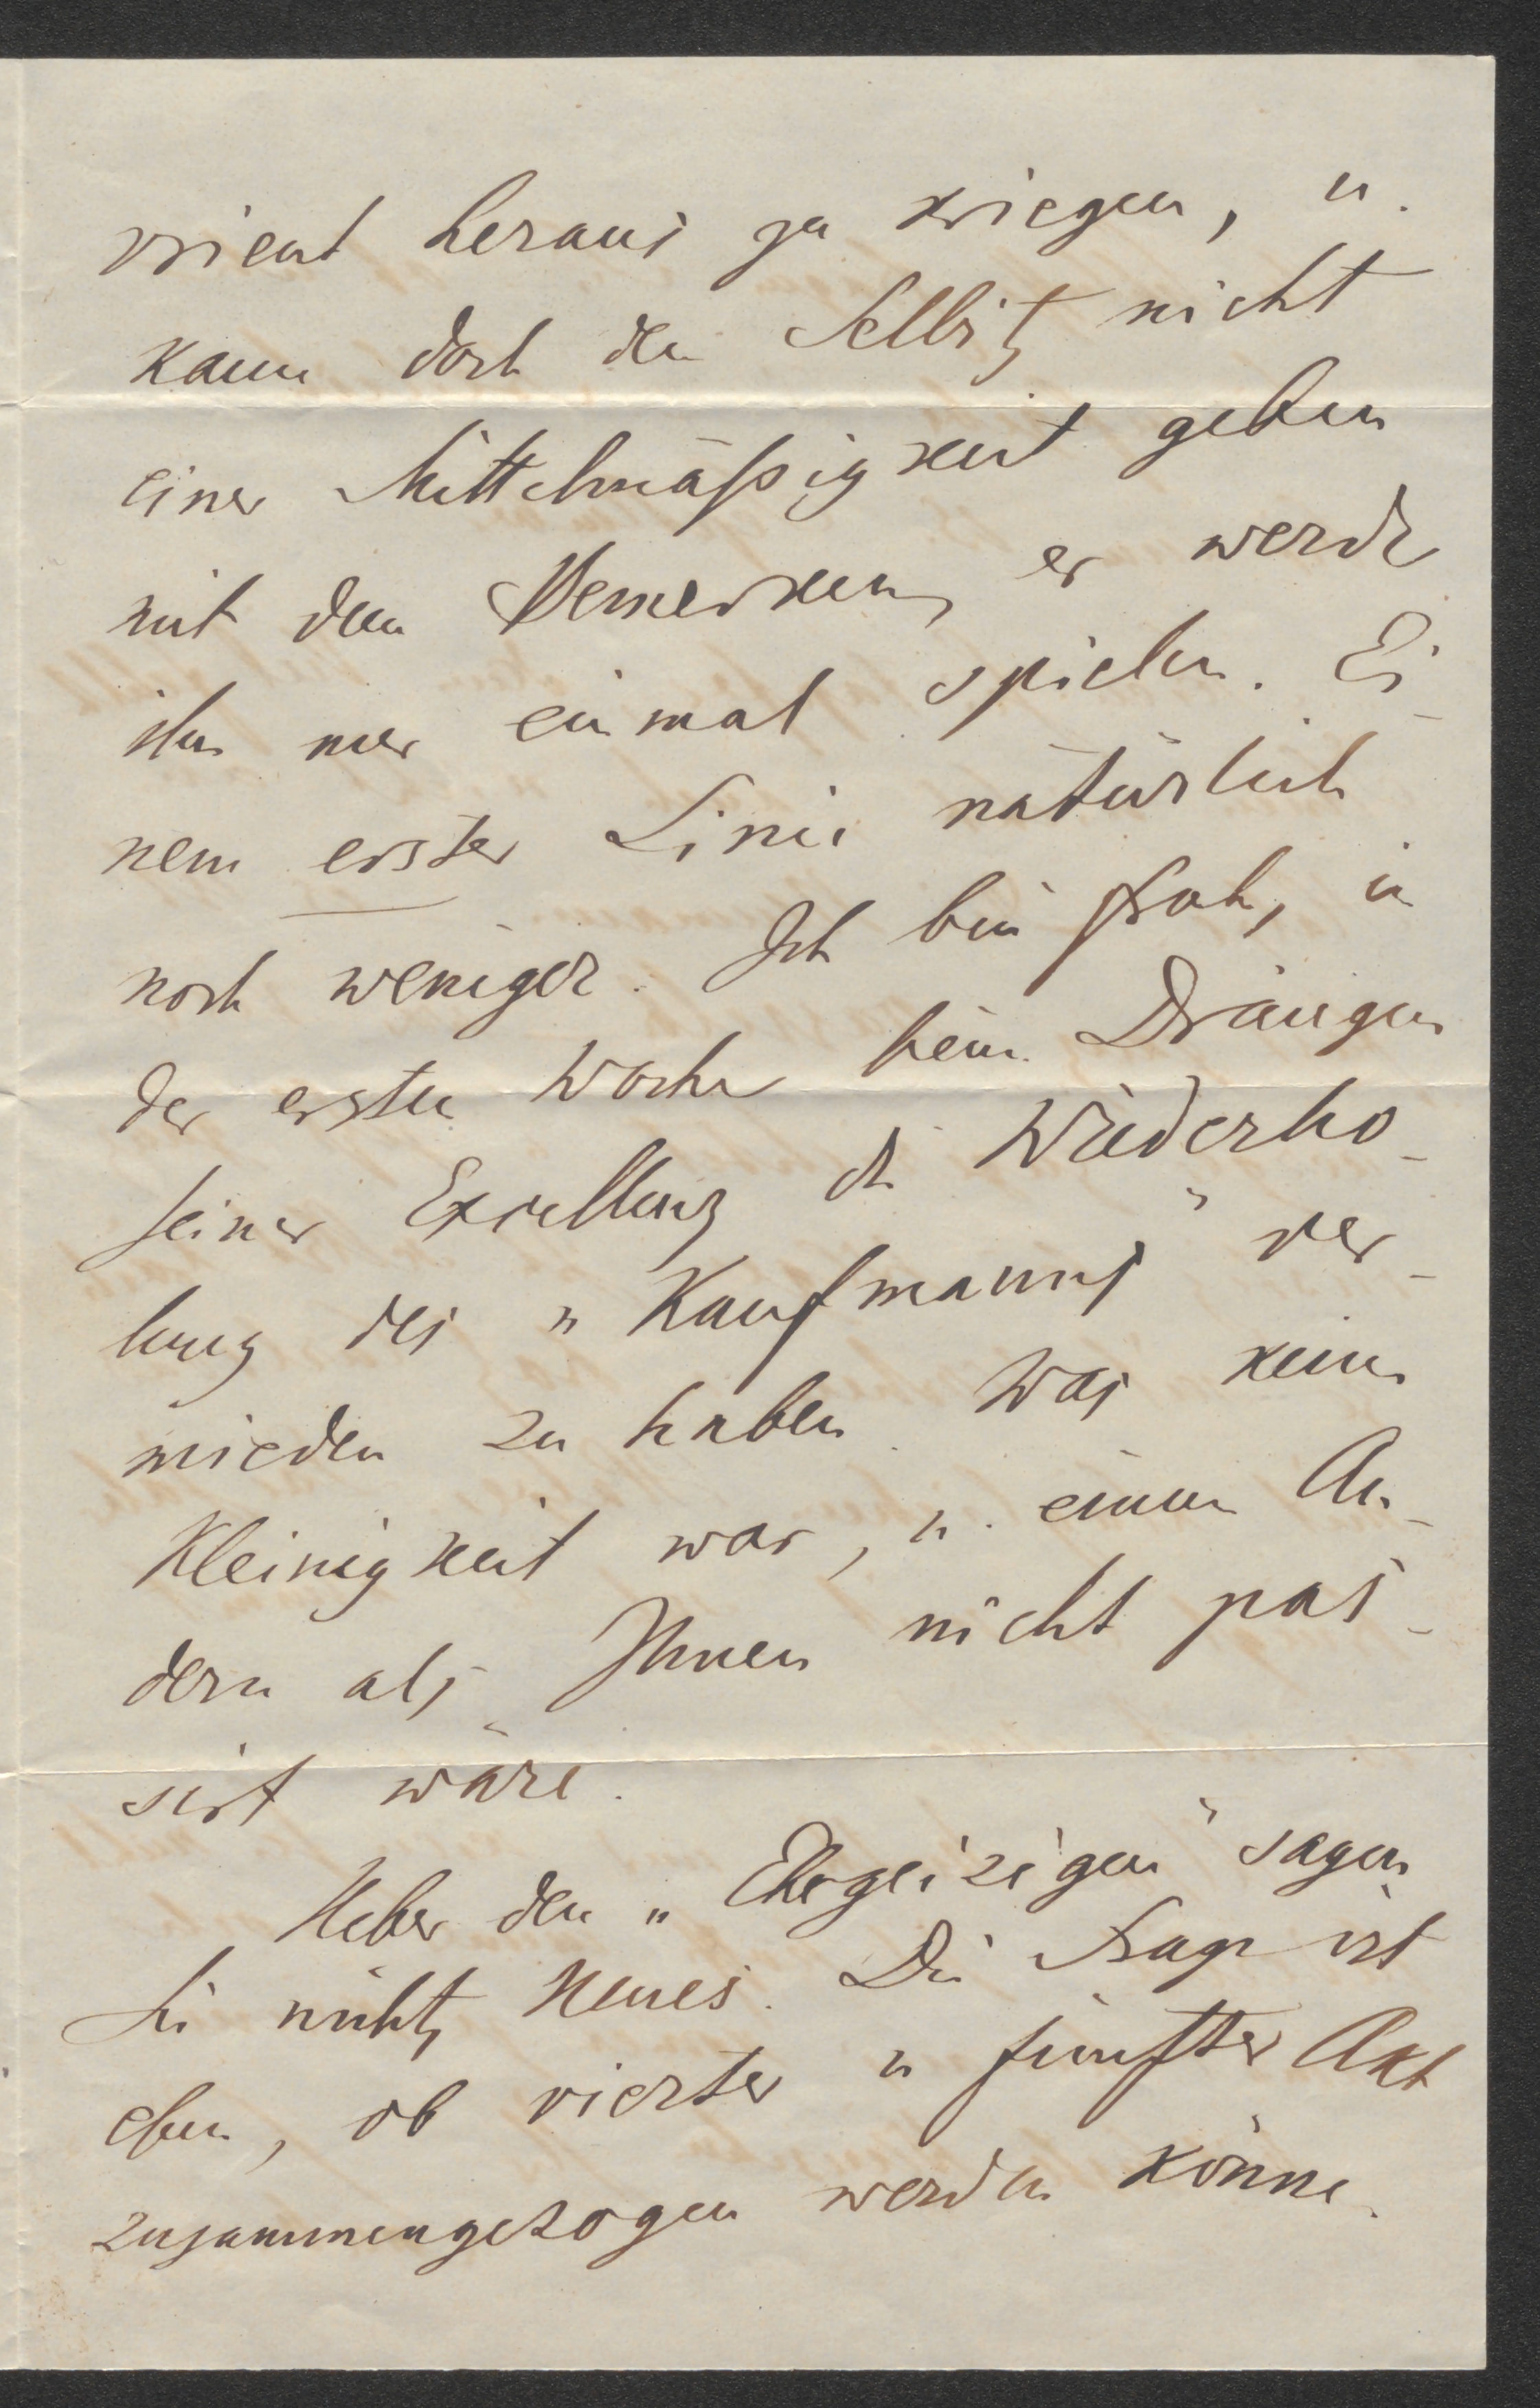 vrient heraus zu kriegen, u.
kann doch den Selbitz nicht
einer Mittelmäßigkeit geben
mit dem Bemerken, er werde
ihn nur einmal spielen. Ei-
nem erster Linie natürlich
noch weniger. Ich bin froh, in
der ersten Woche beim Drängen
seiner Excellenz die Wiederho-
lung des „Kaufmanns" ver-
mieden zu haben. Was keine
Kleinigkeit war, u. einem An-
dern als Ihnen nicht pas-
sirt wäre.
Ueber den „Ehrgeizigen" sagen
Sie nichts Neues. Die Frage ist
eben, ob vierter u fünfter Akt
zusammengezogen werden könne.